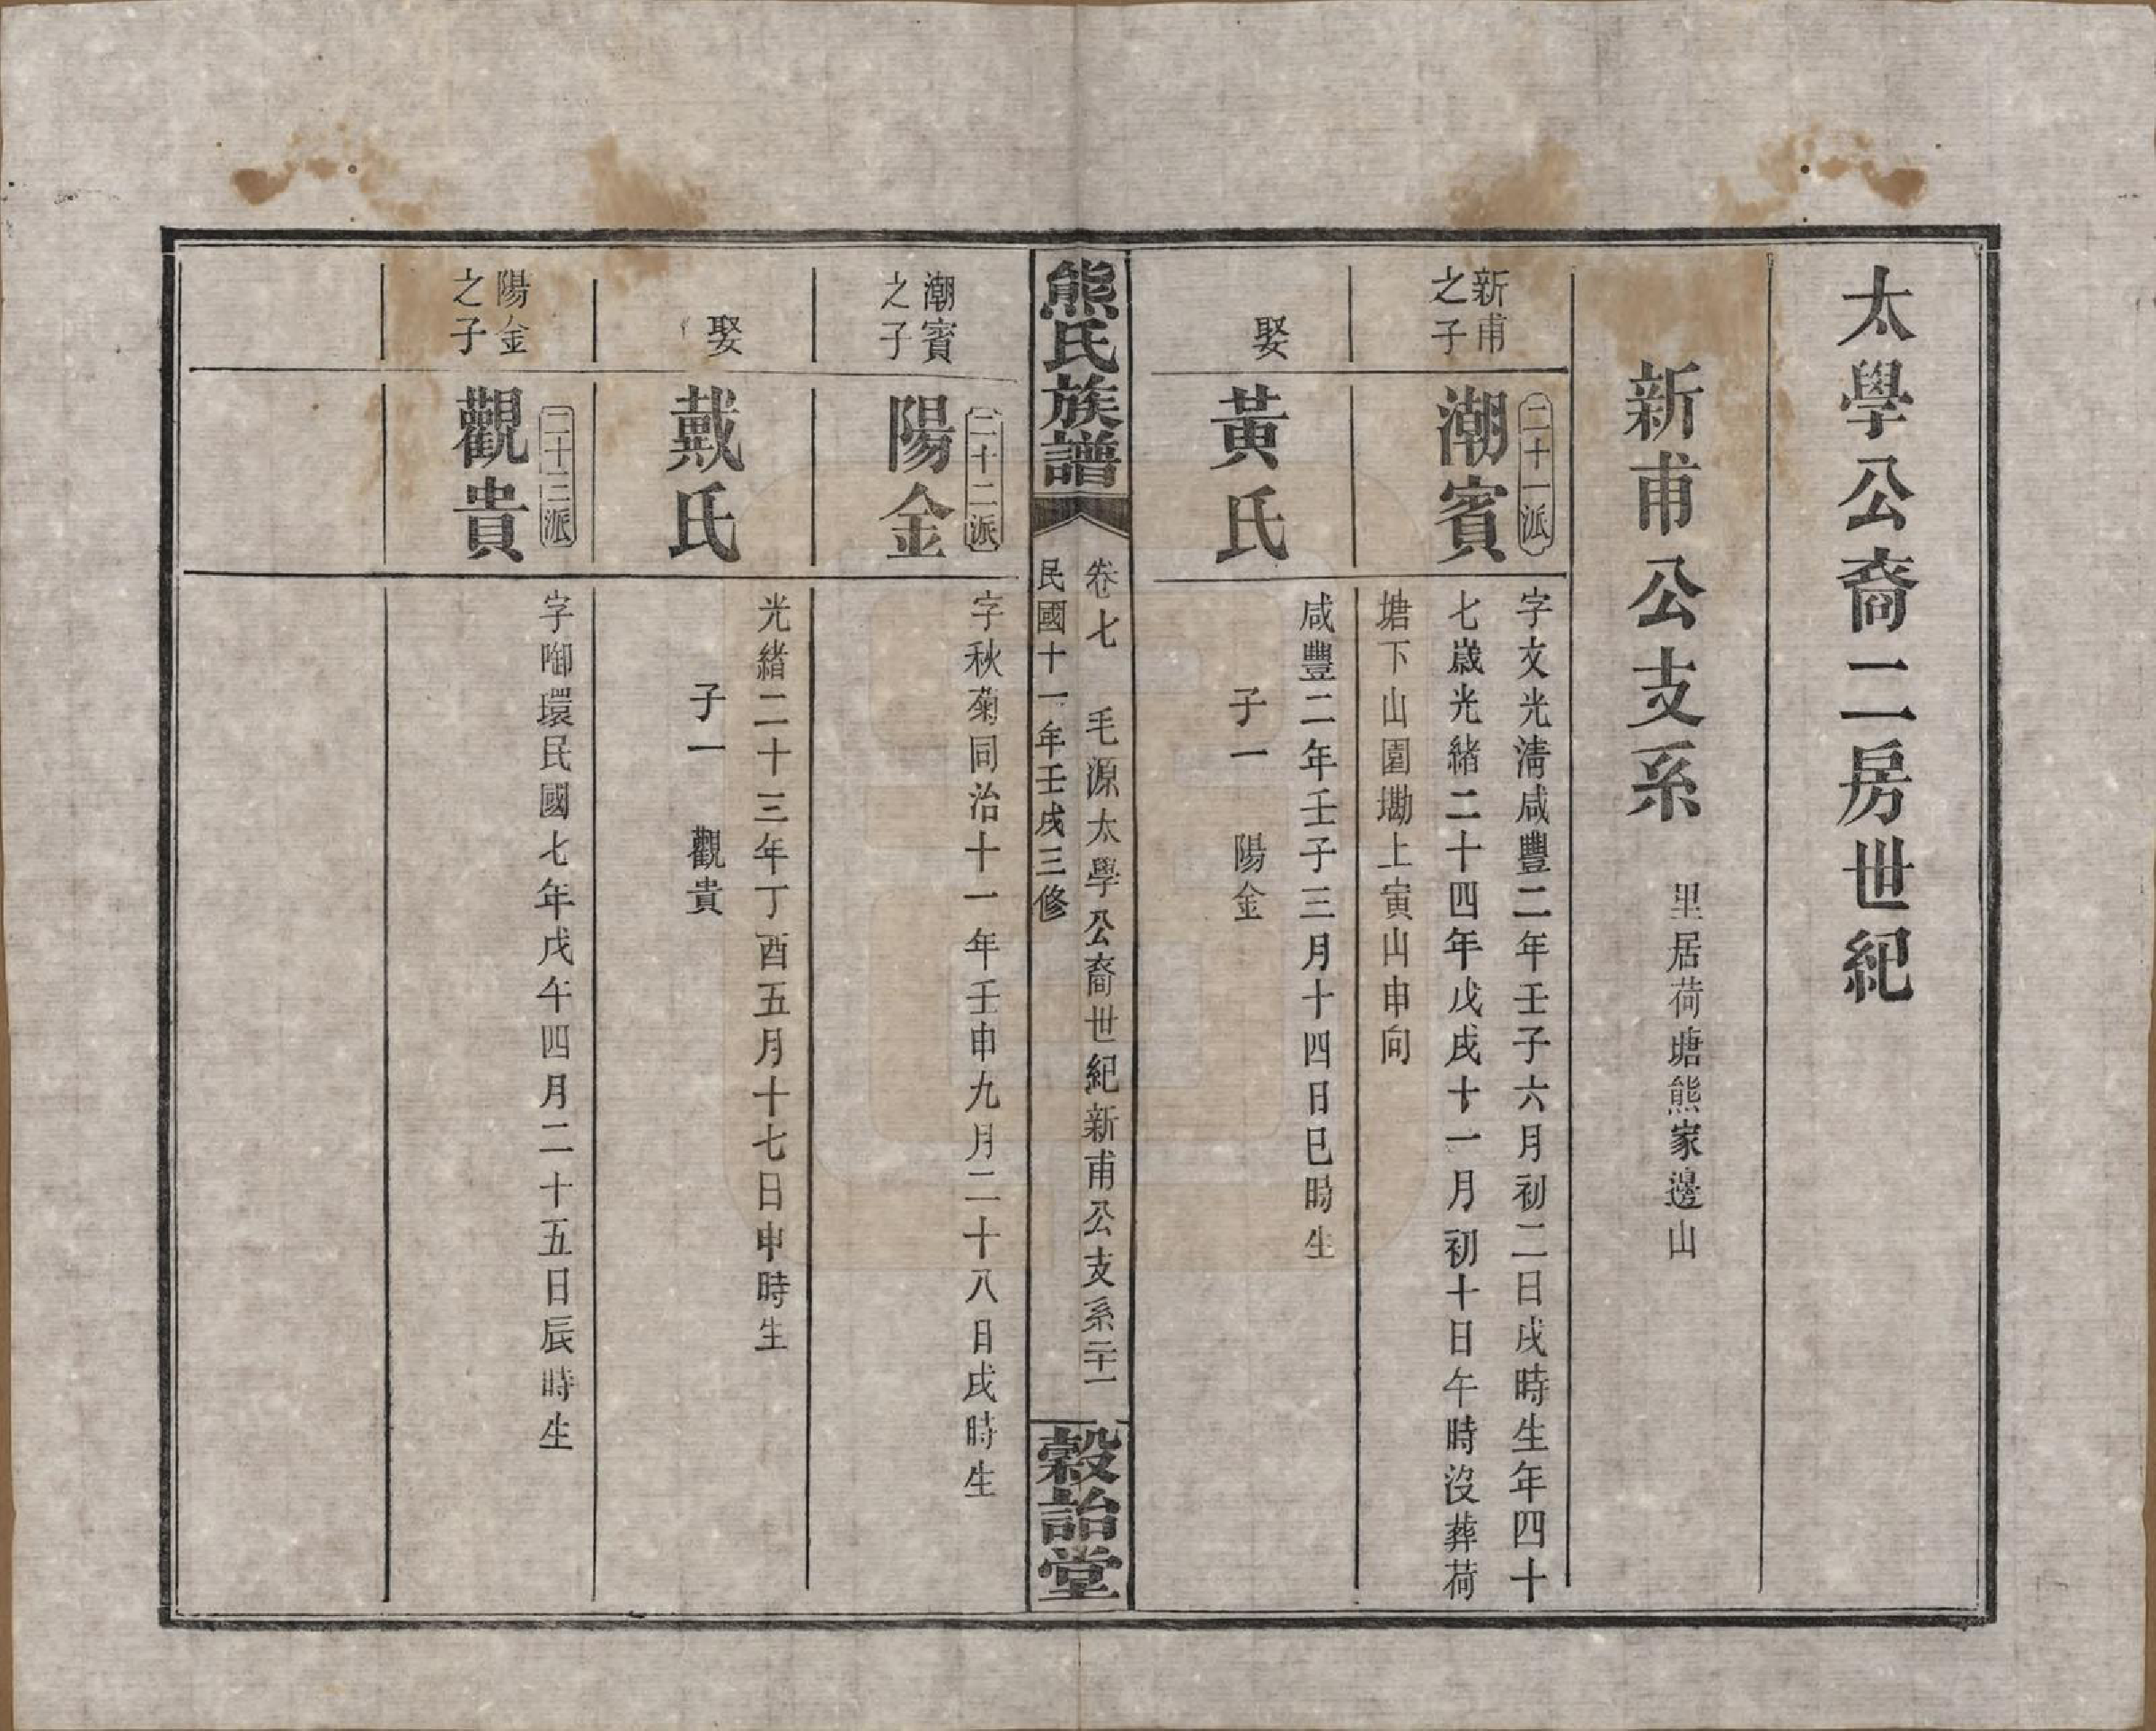 太學公裔二房世紀
新甫公支系
里居荷塘熊家邊山
新甫
之子
二十一派
潮賓
字文光淸咸豐二年壬子六月初二日戌時生年四十
七歲光緒二十四年戊戌十一月初十日午時沒葬荷
塘下山園墈上寅山申向
娶
黃氏
咸豐二年壬子三月十四日巳時生
子一 陽金
熊氏族譜
卷七 毛源太學公裔世紀新甫公支系二十一
民國十一年壬戌三修
穀詒堂
潮賓
之子
二十二派
陽金
字秋菊同治十一年壬申九月二十八日戌時生
娶
戴氏
光緒二十三年丁酉五月十七日申時生
子一 觀貴
陽金
之子
二十三派
觀貴
字啣環民國七年戊午四月二十五日辰時生